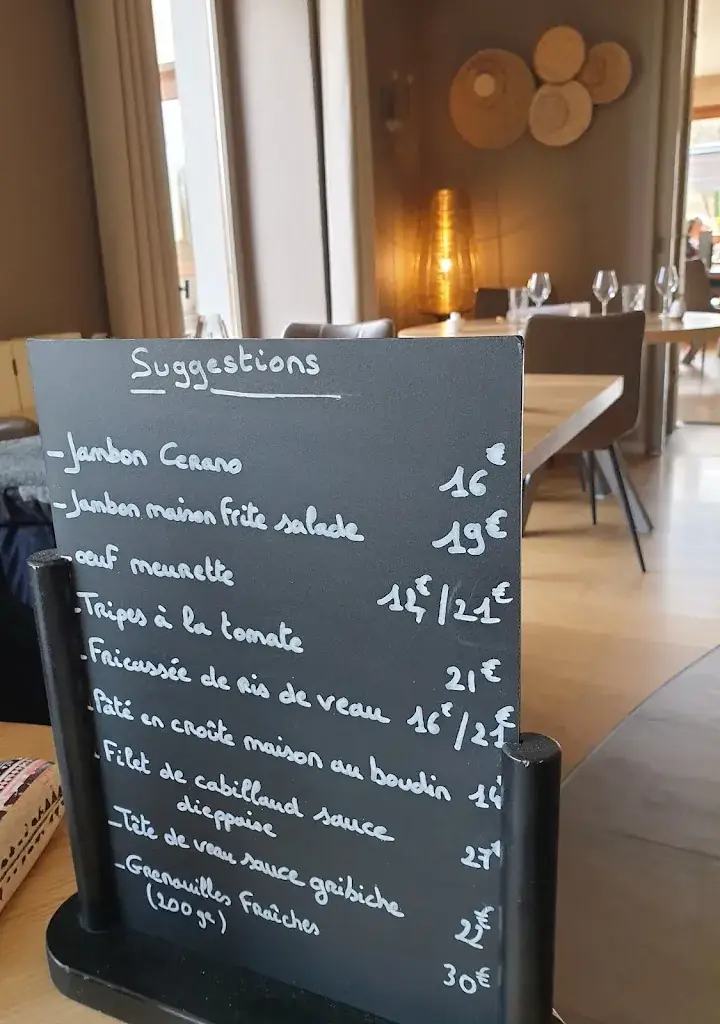 Suggestions
- Jambon Cerano 16€
- Jambon maison frite salade 19€
- oeuf meurette 14€/21€
- Tripes à la tomate 21€
- Fricassée de Ris de veau 16€/21€
- Pâté en croûte maison au boudin 14
- Filet de cabillaud sauce
dieppoise 27€
- Tête de veau sauce gribiche 22€
- Grenouilles Fraîches
(200 gr) 30€